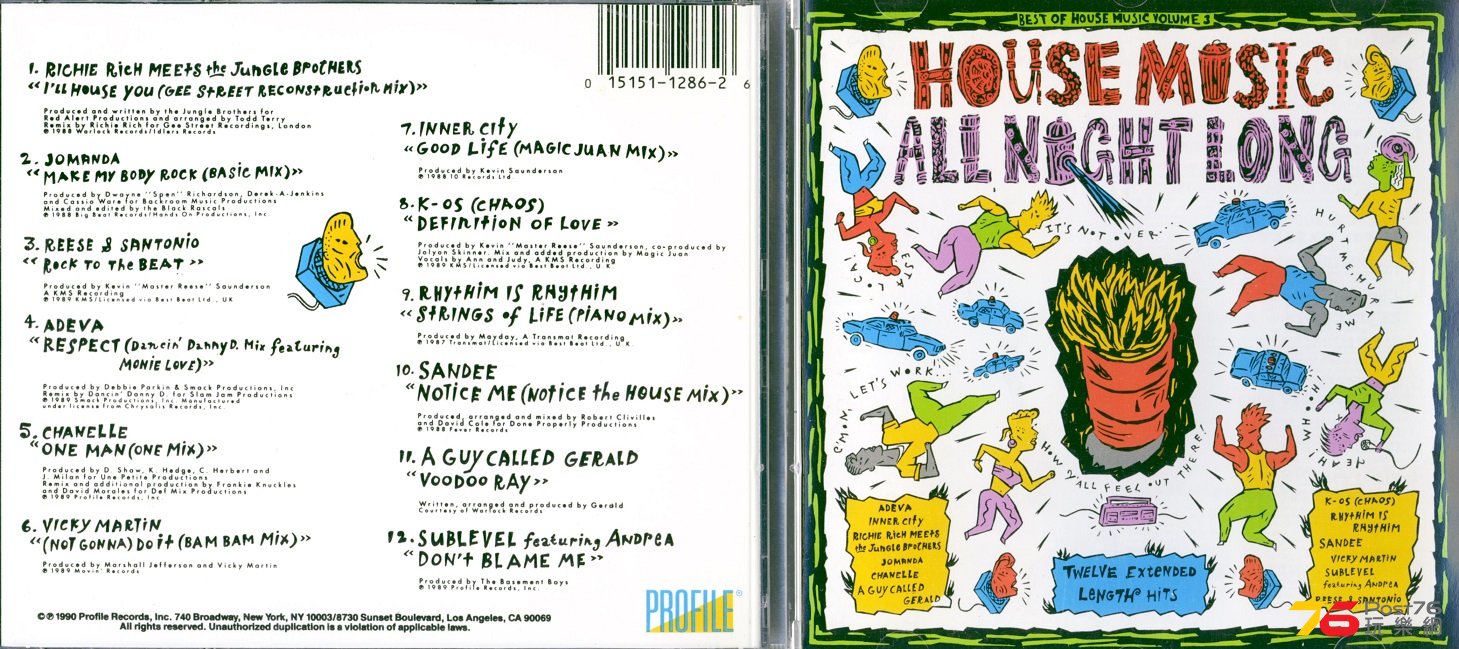 1. RICHIE RICH MEETS the JUNGLE BROTHERS
"I'LL HOUSE YOU (GEE STREET RECONSTRUCTION MIX)"
Produced and written by the Jungle Brothers for
Red Alert Productions and arranged by Todd Terry
Remix by Richie Rich for Gee Street Recordings, London
℗ 1988 Warlock Records/Idlers Records
2. JOMANDA
"MAKE MY BODY ROCK (BASIC MIX)"
Produced by Dwayne "Spen" Richardson, Derek-A-Jenkins
and Cassio Ware for Backroom Music Productions
Mixed and edited by the Black Rascals
℗ 1988 Big Beat Records/Hands On Productions, Inc.
3. REESE & SANTONIO
"ROCK TO THE BEAT"
Produced by Kevin "Master Reese" Saunderson
A KMS Recording
℗ 1989 KMS/Licensed via Best Beat Ltd., UK
4. ADEVA
"RESPECT (Dancin' Danny D. Mix featuring
MONIE LOVE)"
Produced by Debbie Parkin & Smack Productions, Inc
Remix by Dancin' Danny D. for Slam Jam Productions
℗ 1989 Smack Productions, Inc. Manufactured
under license from Chrysalis Records, Inc.
5. CHANELLE
"ONE MAN (ONE MIX)"
Produced by D. Shaw, K. Hedge, C. Herbert and
J. Milan for Une Petite Productions
Remix and additional production by Frankie Knuckles
and David Morales for Def Mix Productions
℗ 1989 Profile Records, Inc.
6. VICKY MARTIN
"(NOT GONNA) DO IT (BAM BAM MIX)"
Produced by Marshall Jefferson and Vicky Martin
℗ 1989 Movin' Records
0 15151-1286-2 6
7. INNER CITY
"GOOD LIFE (MAGIC JUAN MIX)"
Produced by Kevin Saunderson
℗ 1988 10 Records Ltd
8. K-OS (CHAOS)
"DEFINITION OF LOVE"
Produced by Kevin "Master Reese" Saunderson, co-produced by
Jolyon Skinner. Mix and added production by Magic Juan
Vocals by Ann and Judy, A KMS Recording
℗ 1989 KMS/Licensed via Best Beat Ltd., U.K.
9. RHYTHIM IS RHYTHIM
"STRINGS of LIFE (PIANO MIX)"
Produced by Mayday, A Transmat Recording
℗ 1987 Transmat/Licensed via Best Beat Ltd., U.K.
10. SANDEE
"NOTICE ME (NOTICE the HOUSE MIX)"
Produced, arranged and mixed by Robert Clivilles
and David Cole for Done Properly Productions
℗ 1988 Fever Records
11. A GUY CALLED GERALD
"VOODOO RAY"
Written, arranged and produced by Gerald
Courtesy of Warlock Records
12. SUBLEVEL featuring ANDREA
"DON'T BLAME ME"
Produced by The Basement Boys
℗ 1989 Profile Records, Inc.
PROFILE®
©℗ 1990 Profile Records, Inc. 740 Broadway, New York, NY 10003/8730 Sunset Boulevard, Los Angeles, CA 90069
All rights reserved. Unauthorized duplication is a violation of applicable laws.
BEST OF HOUSE MUSIC VOLUME 3
HOUSE MUSIC
ALL NIGHT LONG
IT'S NOT OVER...
HURT ME, HURT ME
C'MON, LET'S WORK...
HOW Y'ALL FEEL OUT THERE
YEAH
ADEVA
INNER CITY
RICHIE RICH MEETS
the JUNGLE BROTHERS
JOMANDA
CHANELLE
A GUY CALLED
GERALD
TWELVE EXTENDED
LENGTH HITS
K-OS (CHAOS)
RHYTHIM IS
RHYTHIM
SANDEE
VICKY MARTIN
SUBLEVEL
featuring ANDREA
REESE & SANTONIO
76 Post76
玩樂網